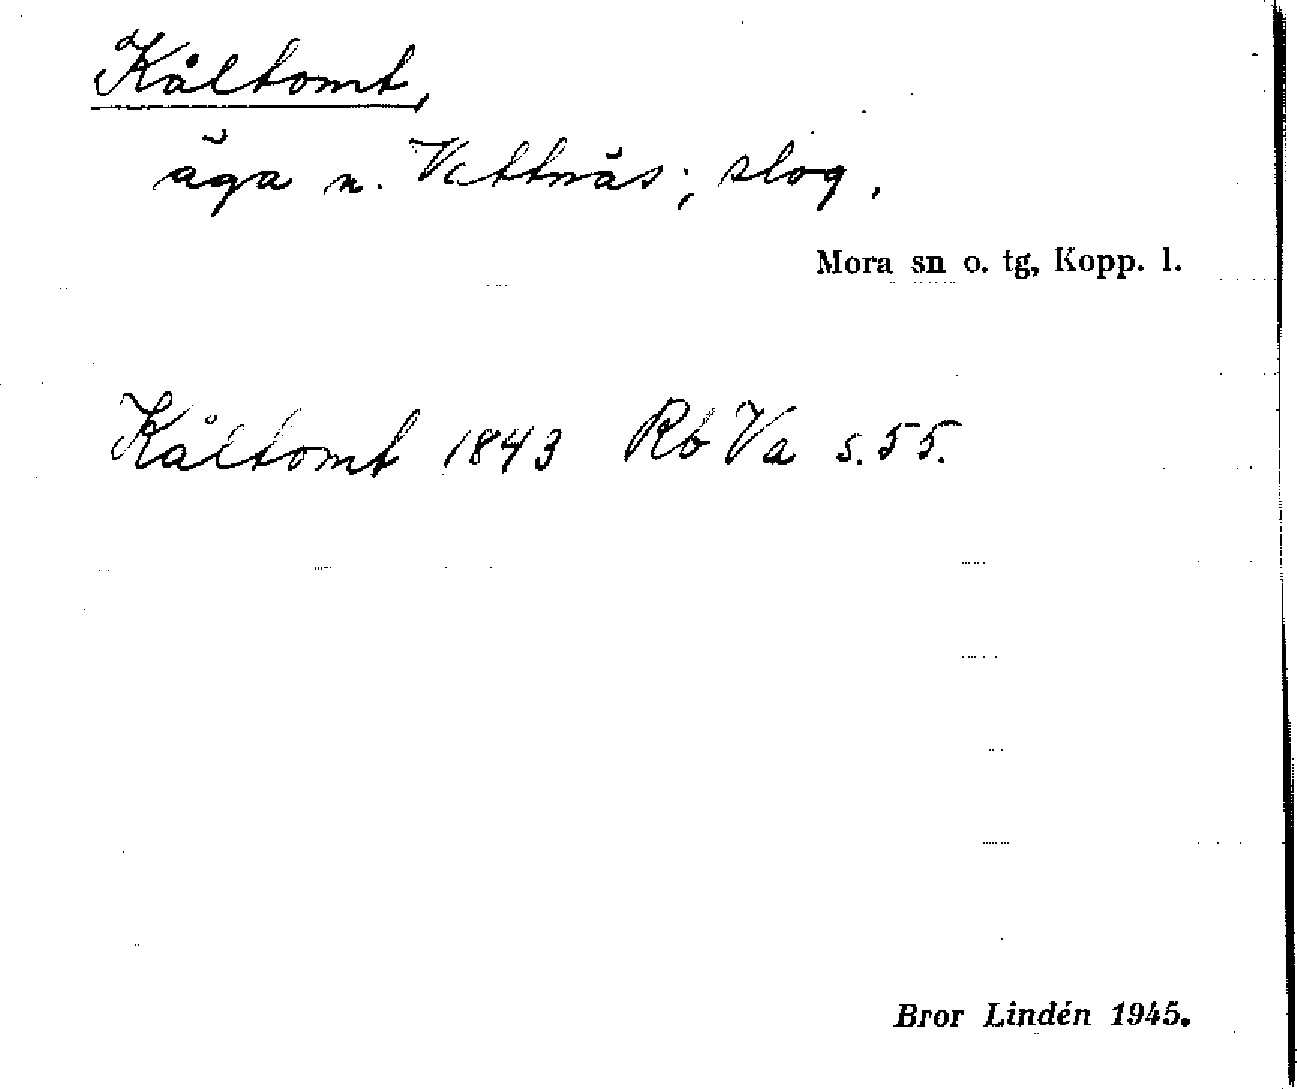 Kåltomt,
äga n. Vattnäs; slog.
Mora sn o. tg, Kopp. l.
Kåltomt 1843 Rb Va s. 55.
Bror Lindén 1945.